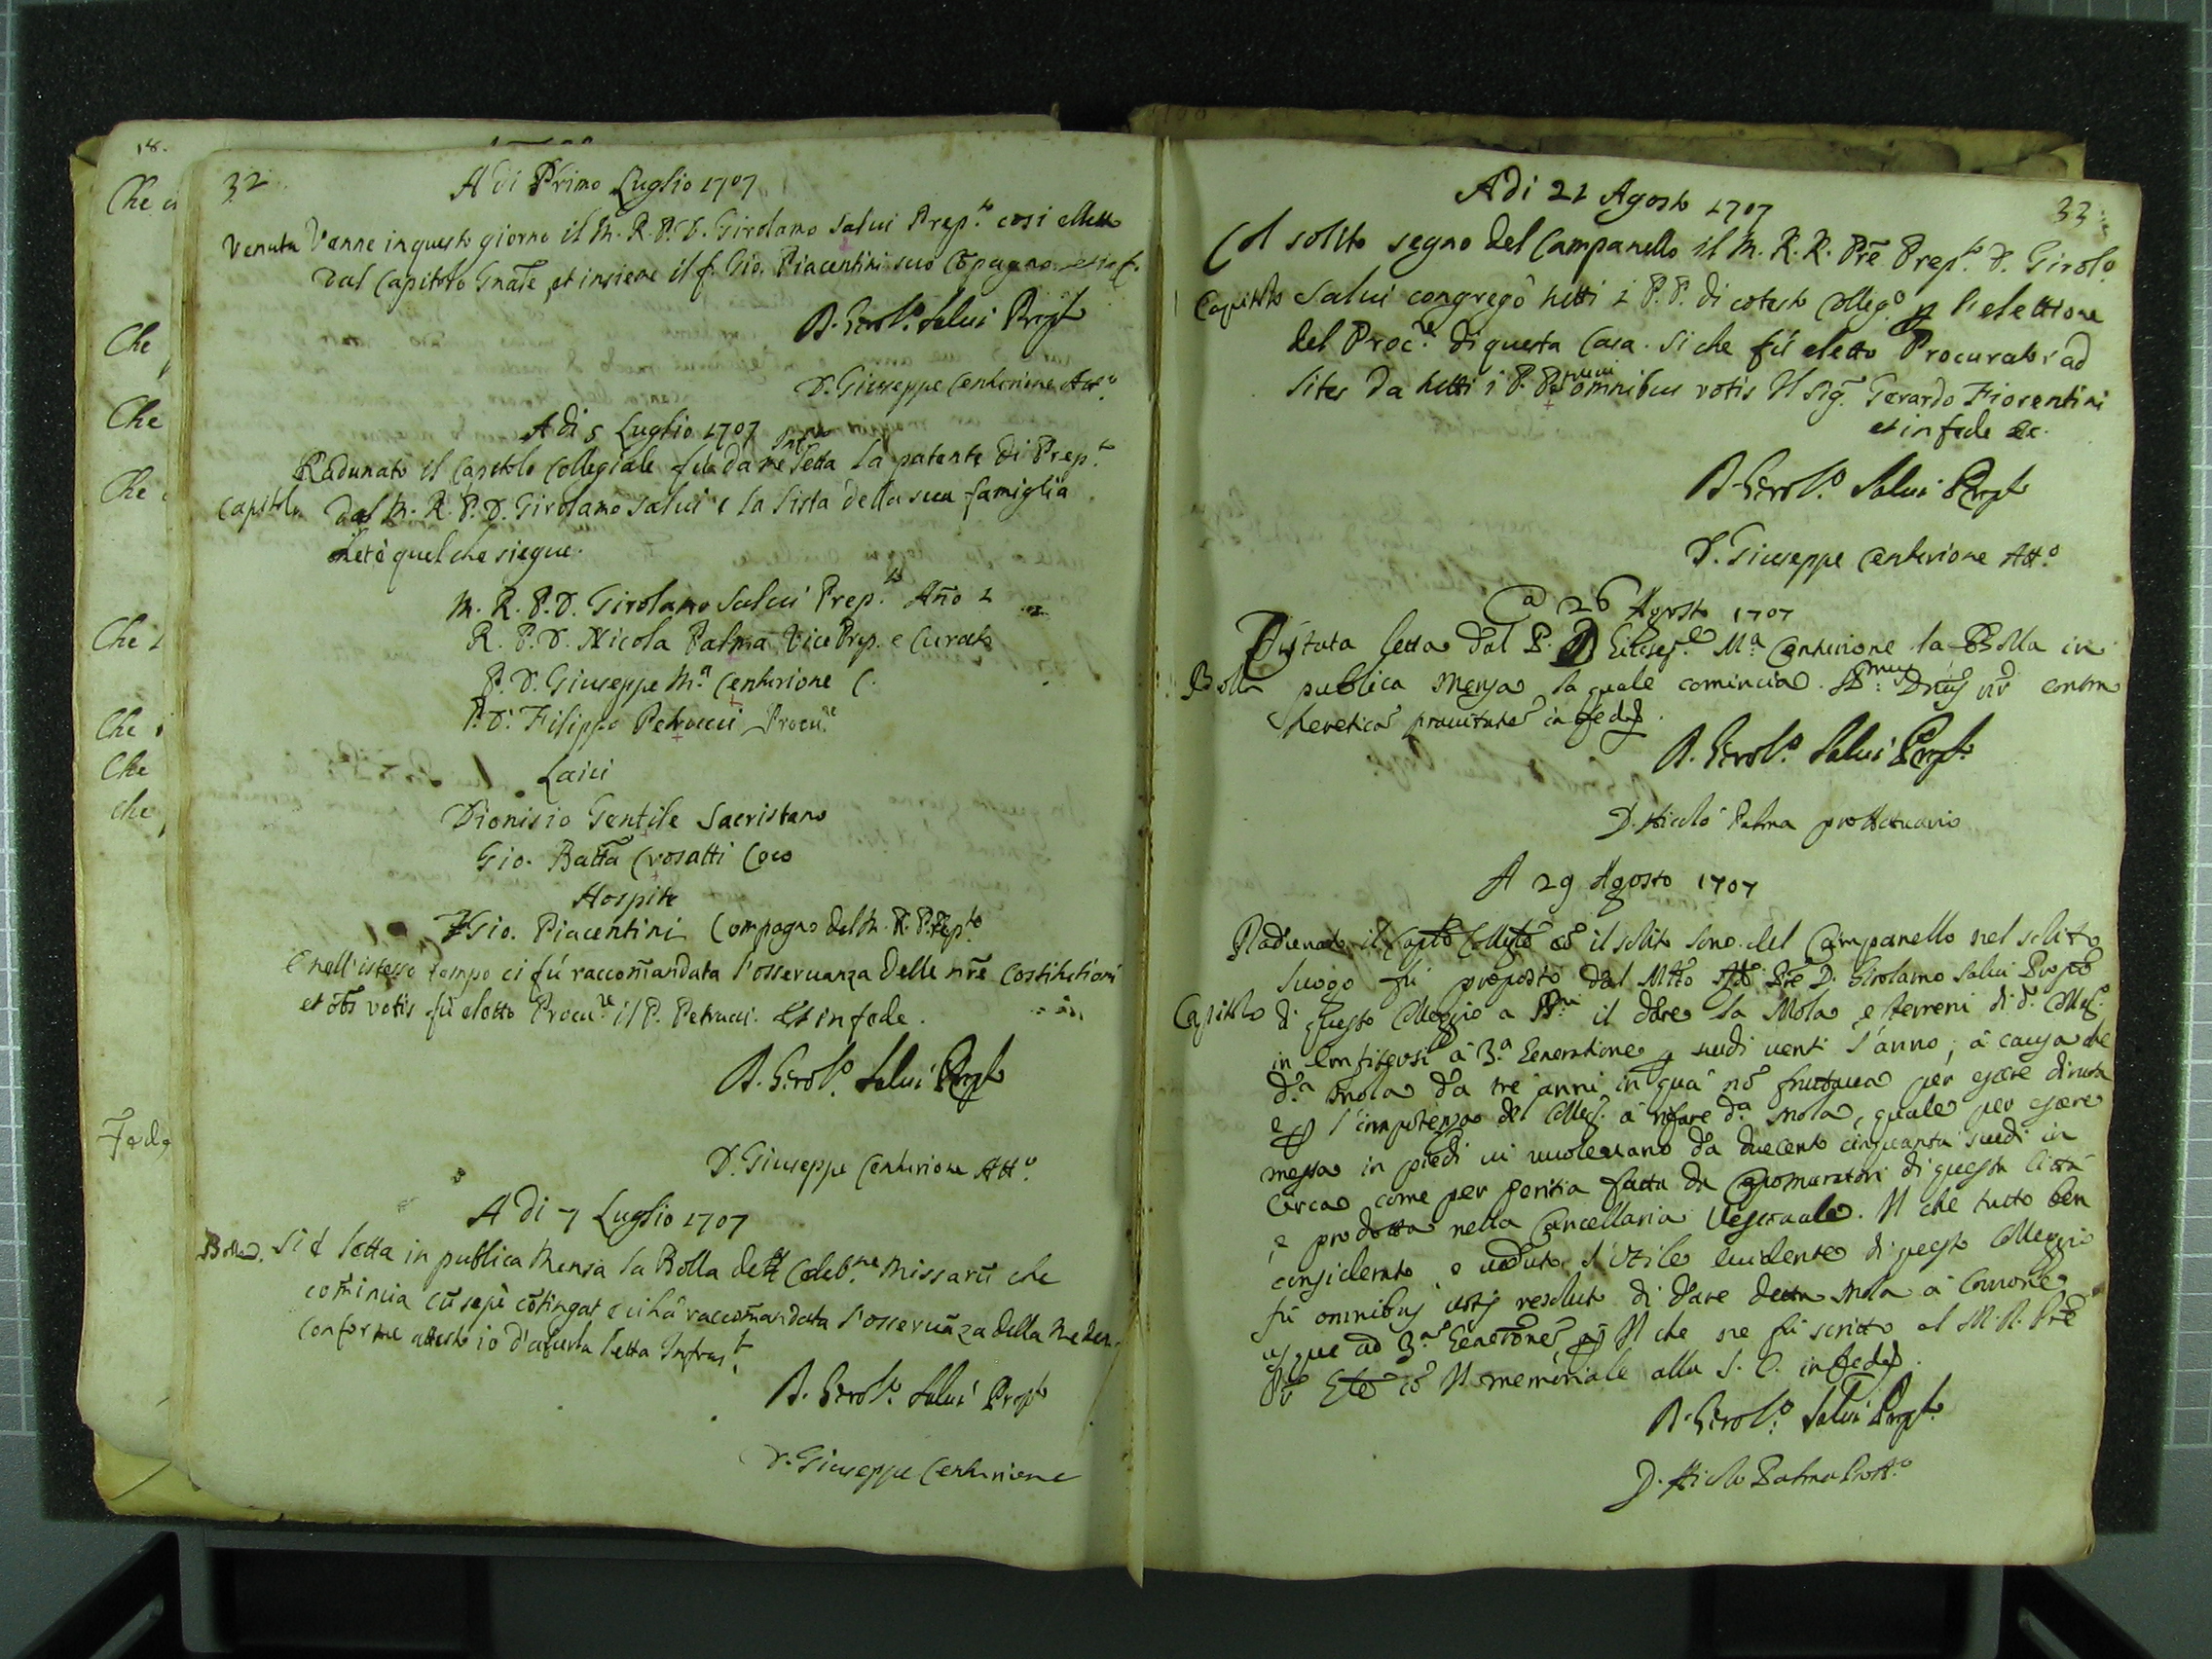 18.
Che
Che
Che
Che
Che
Che
Che
che
Fede
32
A di Primo Luglio 1707
Venuta Venne in questo giorno il M. R. P. D. Girolamo Salvi Prep.to cosi eletto
dal Capitolo Gnãle, et insieme il f. Gio. Piacentini suo Cõpagno
D. Girol.º Salvi Prep.to
D. Giuseppe Centurione Att.º
A di 5 Luglio 1707
Radunato il Capitolo Collegiale fù da me letta la patente di Prep.to
Capitolo del M. R. P. D. Girolamo Salvi e la lista della sua famiglia
et è quel che siegue.
M. R. P. D. Girolamo Salvi Prep.to Año 1
R. P. D. Nicola Palma Vice Prep. e Curato
P. D. Giuseppe M.a Centurione C.
P. D. Filippo Petrucci Procu.re
Laici
Dionisio Gentile Sacristano
Gio. Batta Crosatti Coco
Hospite
Gio. Piacentini Compagno del M. R. P. Prep.to
E nell'istesso tempo ci fù raccom̃andata l'osservanza delle nr̃e Costitutioni
et oĩbs votis fù eletto Procu.re il P. Petrucci. Et in fede.
D. Girol.º Salvi Prep.to
D. Giuseppe Centurione Att.º
A di 7 Luglio 1707
Bolla. Si è letta in publica Mensa la Bolla de Celeb.ne Missarũ che
com̃incia cũ sepè cõtingat e ci hà raccom̃andata l'osservãza della meden
conforme attesto io d'averla letta Infras.to
D. Girol.º Salvi Prep.to
D. Giuseppe Centurione
33
A di 21 Agosto 1707
Col solito segno del Campanello il M. R. R. Prẽ Prep.to D. Girolº
Capitolo Salvi congregò tutti i P. P. di cotesto Colleg.º p l'elettione
del Proc.re di questa Casa. Si che fù eletto Procurator ad
lites da tutti i P. P. omnibus votis Il Sig. Gerardo Fiorentini
et in fede &c.
D. Girol.º Salvi Prep.to
D. Giuseppe Centurione Att.º
A 26 Agosto 1707
È stata letta dal P. D. Giusep.e M.a Centurione la Bolla in
Bolla publica Mensa la quale comincia contra
heretica pravitate in fede
D. Girol.º Salvi Prep.to
D. Nicolò Palma pro Attuario
A 29 Agosto 1707
Radunato il Capto Collegto cõ il solito sono del Campanello nel solito
luogo fù proposto dal Mto Rdo Prẽ D. Girolamo Salvi Prepto
Capitolo di questo Colleggio a PP.ri il dare la Mola, e terreni di d.º Colleg.º
in Emfiteosi à 3.a Generatione p scudi venti l'anno; à causa che
d.a mola da tre anni in quà nõ fruttava per essere diruta
e p l'impotenza del Colleg.º à rifare d.a mola, quale per essere
messa in piedi vi vuolevano da duecento cinquanta scudi in
circa come per peritia fatta da Capomuratori di questa Città
e prodotta nella Cancellaria Vescovale. Il che tutto ben
considerato, e veduto l'utile evidente di questo Colleggio
fù omnibus votis resoluto di dare detta mola à
usque ad 3.am Generõne, Il che ne fù scritto al M. R. Prẽ
cõ Il memoriale alla S. C. in fede
D. Girol.º Salvi Prep.to
D. Nicolò Palma Pro Att.º